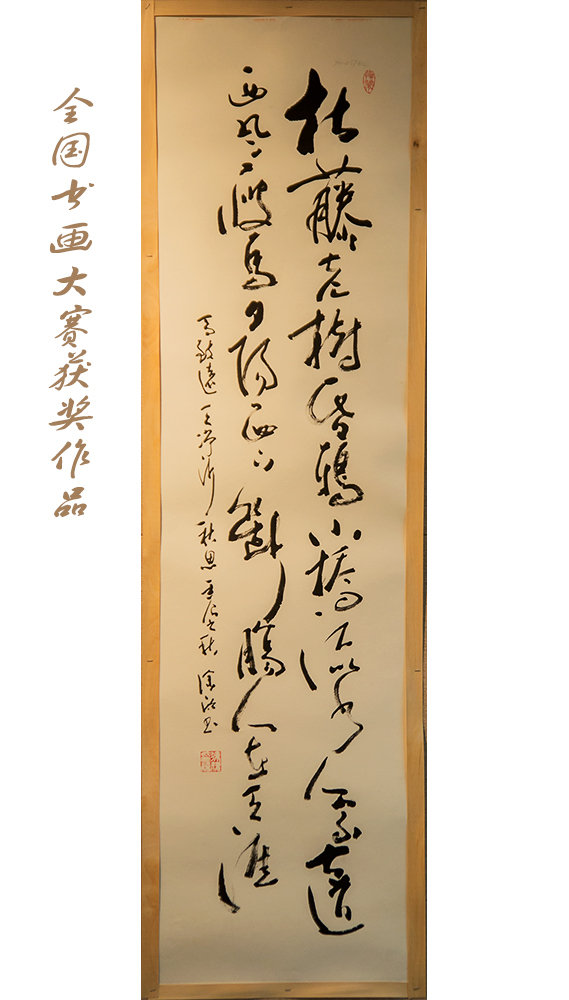 全国书画大赛获奖作品
枯藤老樹昏鴉小橋流水人家古道
西风瘦馬夕陽西下斷腸人在天涯
馬致遠天净沙秋思